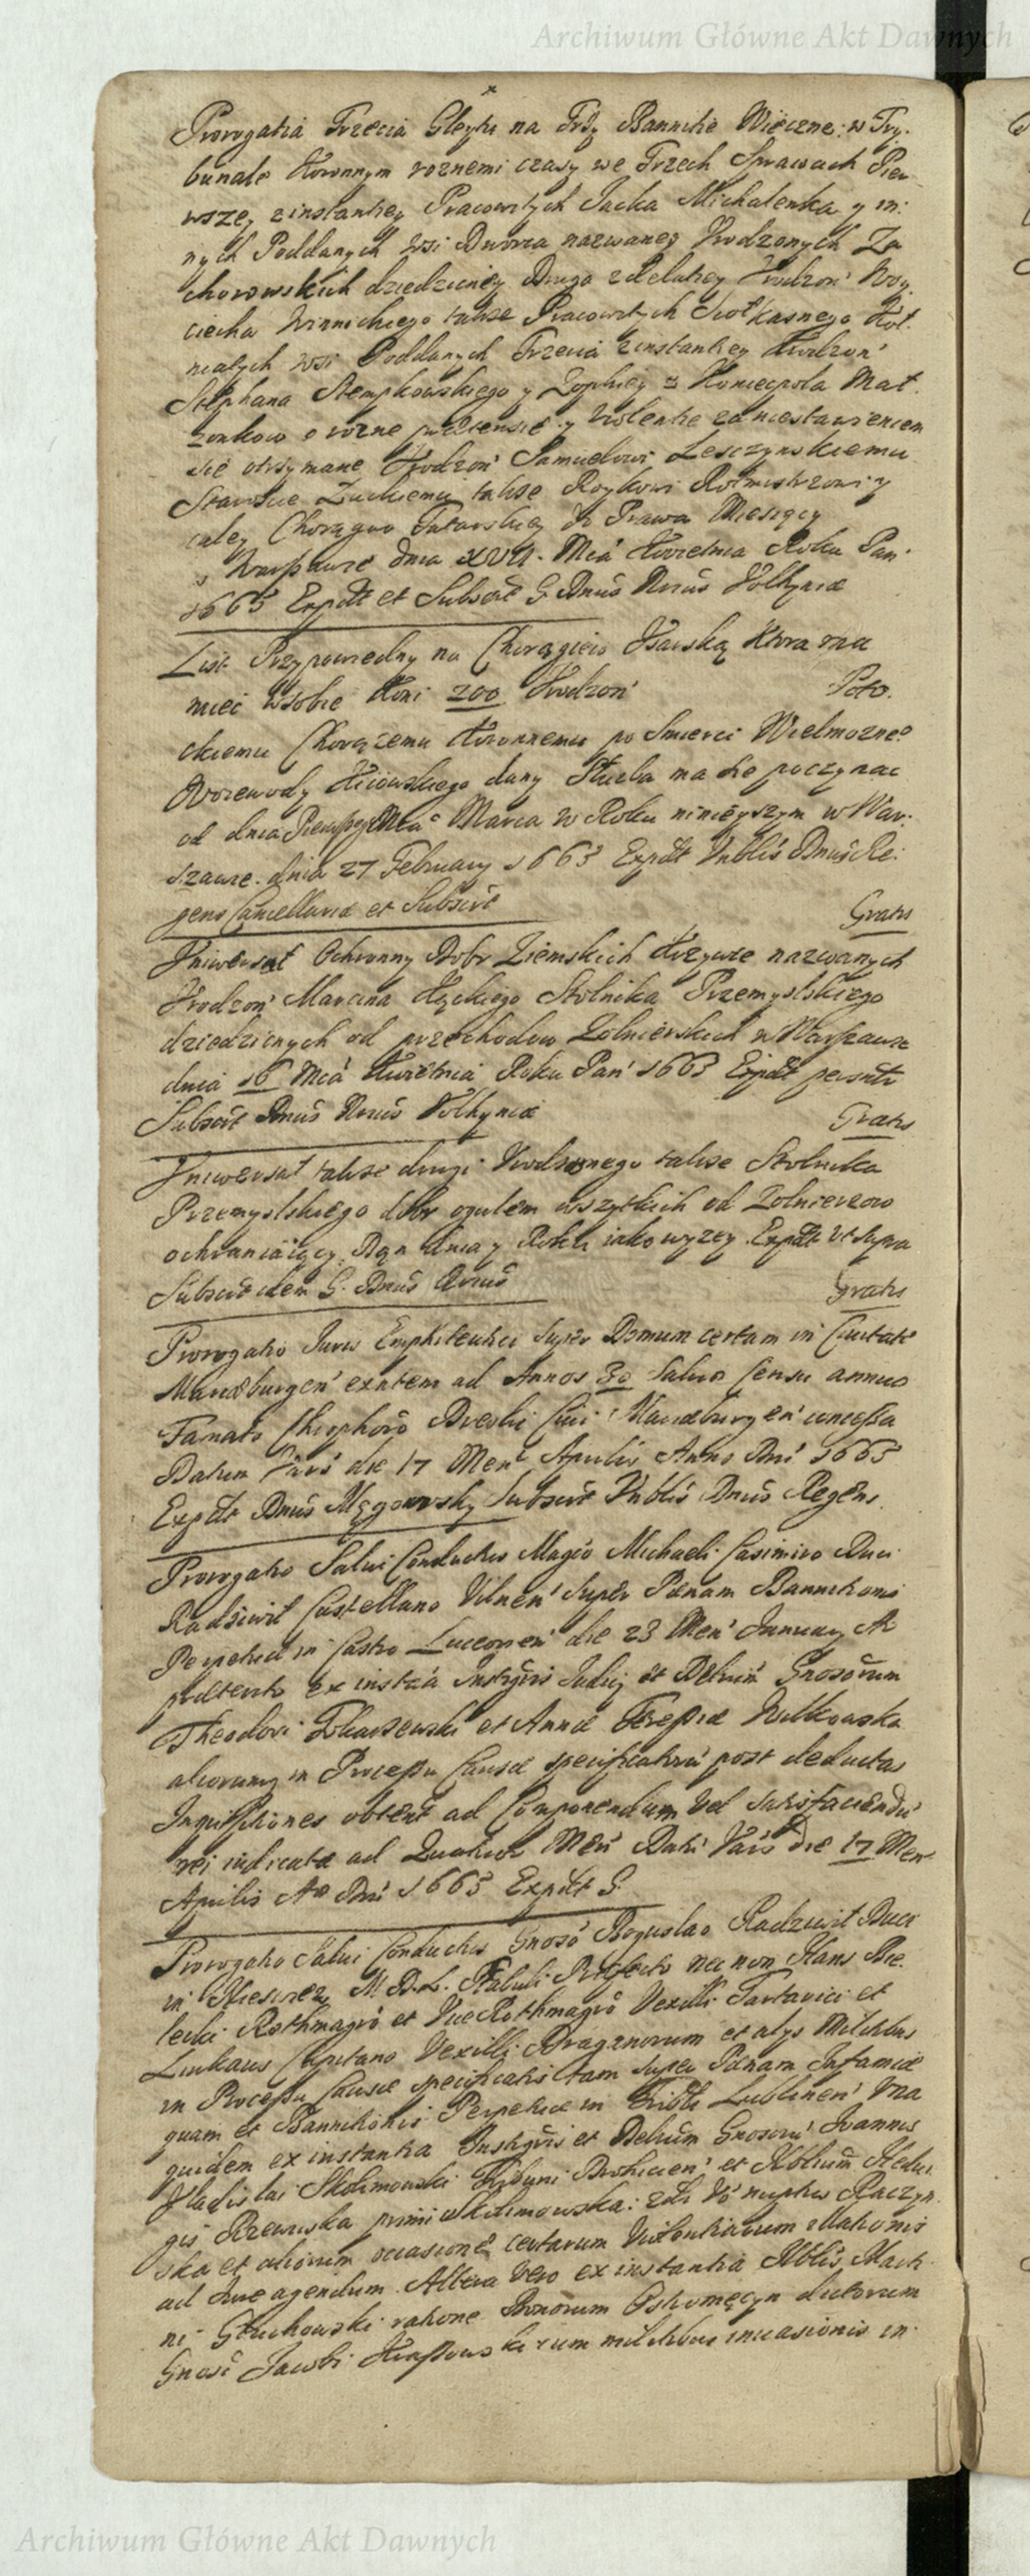 Archiwum Główne Akt Dawnych
Prorogatia Trzecia Gleytu na Trzy Bannitie Wieczne: w Try:
bunale Koronnym roznemi czasy we Trzech Sprawach Pier
wszey z instantiey Pracowitych Jacka Michalenka y in:
nych Poddanych wsi Dworca nazwaney Urodzonych Za
chorowskich dziedziczney Druga z delatiey Urodzon' Woy
ciecha Winnickiego takze Pracowitych
wsi Poddanych Trzecia z instantiey Urodzon'
Stephana Stempkowskiego y Zophiey z Koniecpola Mał
zonkow o rozne praetensie y violentie za niestawieniem
sie otrzymane Urodzon' Samuelowi Lesczynskiemu
Staroscie Łuckiemu takze Roykowi Rotmistrzowi y
całey Chorągwi Tatarskiey do Prawa Miesięcy
w Warszawie dnia XVII. Mca Kwietnia Roku Pan'
1663 Expdt et Subscrt G. Dnus Nrius Volhyniae
List Przypowiedny na Chorągiew Usarską Ktora ma
miec w sobie Koni 200 Urodzon' Poto:
ckiemu Chorązemu Koronnemu po Smierci Wielmozneo
Woiewody Kiiowskiego dany Słuzba ma sie poczynac
od dnia Pierwszego Mca Marca w Roku ninieyszym w War:
szawie. dnia 27 February 1663 Expdt Nublis Dnus Re:
gens Cancellariae et Subscrt Gratis
Uniwersał Ochronny Dobr Ziemskich Krzywie nazwanych
Urodzon' Marcina Kąckiego Stolnika Przemyslskiego
dziedzicznych od przechodow Zołnierskich w Warszawie
dnia 16 Mca Kwietnia Roku Pan' 1663 Expdt
Subscrt Dnus Nrius Volhyniae Gratis
Uniwersał takze drugi Urodzonego takze Stolnika
Przemyslskiego dobr ogułem wszytkich od Zołnierzow
ochraniaiący. Dan dnia y Roku iako wyzey. Expdt ut supra
Subscrt idem G. Dnus Nrius Gratis
Prorogatio Juris Emphiteutici super Domum certam in Civitate
Mariaeburgen' exntem ad Annos 30 Salvo Censu annuo
Famato Chrsphoro Civi Mariaeburgen' concessa
Datum Vars' die 17 Men' Aprilis Anno Dni 1663
Expdt Dnus Męgowsky Subscrt Nublis Dnus Regens
Prorogatio Salvi Conductus Magco Michaeli Casimiro Duci
Radziwił Castellano Vilnen' super Paenam Bannitionis
Perpetuae in Castro Luceorien' die 23 Men' January Ao
praeterito ex instea Instgris Judicij et Deltrum Gnosorum
Theodori et Annae Teressiae Wilkowska
aliorumq in Processu Causae specificatoru' post deductas
Inquisitiones obtent ad Componendum vel satisfaciendu'
rei iudicatae ad Quatuor Men' Datt Vars' die 17 Men'
Aprilis Ao Dni 1663 Expdt G.
Prorogatio Salvi Conductus Gnoso Boguslao Radziwił Duci
in M. D. L. Stabuli Praefecto nec non Hans Bie:
lecki Rothmagro et Vice Rothmagro Vexilli Tartarici et
Linkaus Capitano Vexilli Draganorum et alys Militibus
in Processu Causae specificatis tam super Paenam Infamiae
quam et Bannitionis Perpetuae in Tribli Lublinen' una
quidem ex instantia Instgris et Deltrum Gnosoru' Joannis
Vladislai Skolimowski Tribuni et Nobilium Hedui
gis primi Skolimowska: 2di vo nuptus Raczyn
ska et aliorum occasione certarum Violentiarum illationis
ad Jure agendum. Altera vero ex instantia Nblis Mart
ni Głuchowski ratione Bonorum Ostromęczyn dictorum
Gnosi Jacobi cum militibus invasionis in:
Archiwum Główne Akt Dawnych